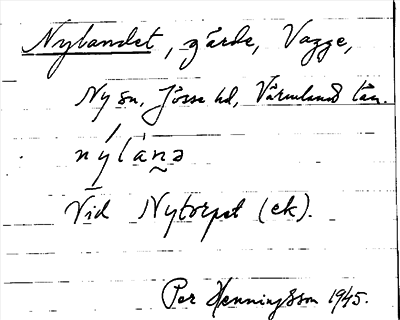 Nylandet, gärde, Vagge,
Ny sn, Jösse hd, Värmland län.
nýlànə
Vid Nytorpet (ek).
Per Henningsson 1945.